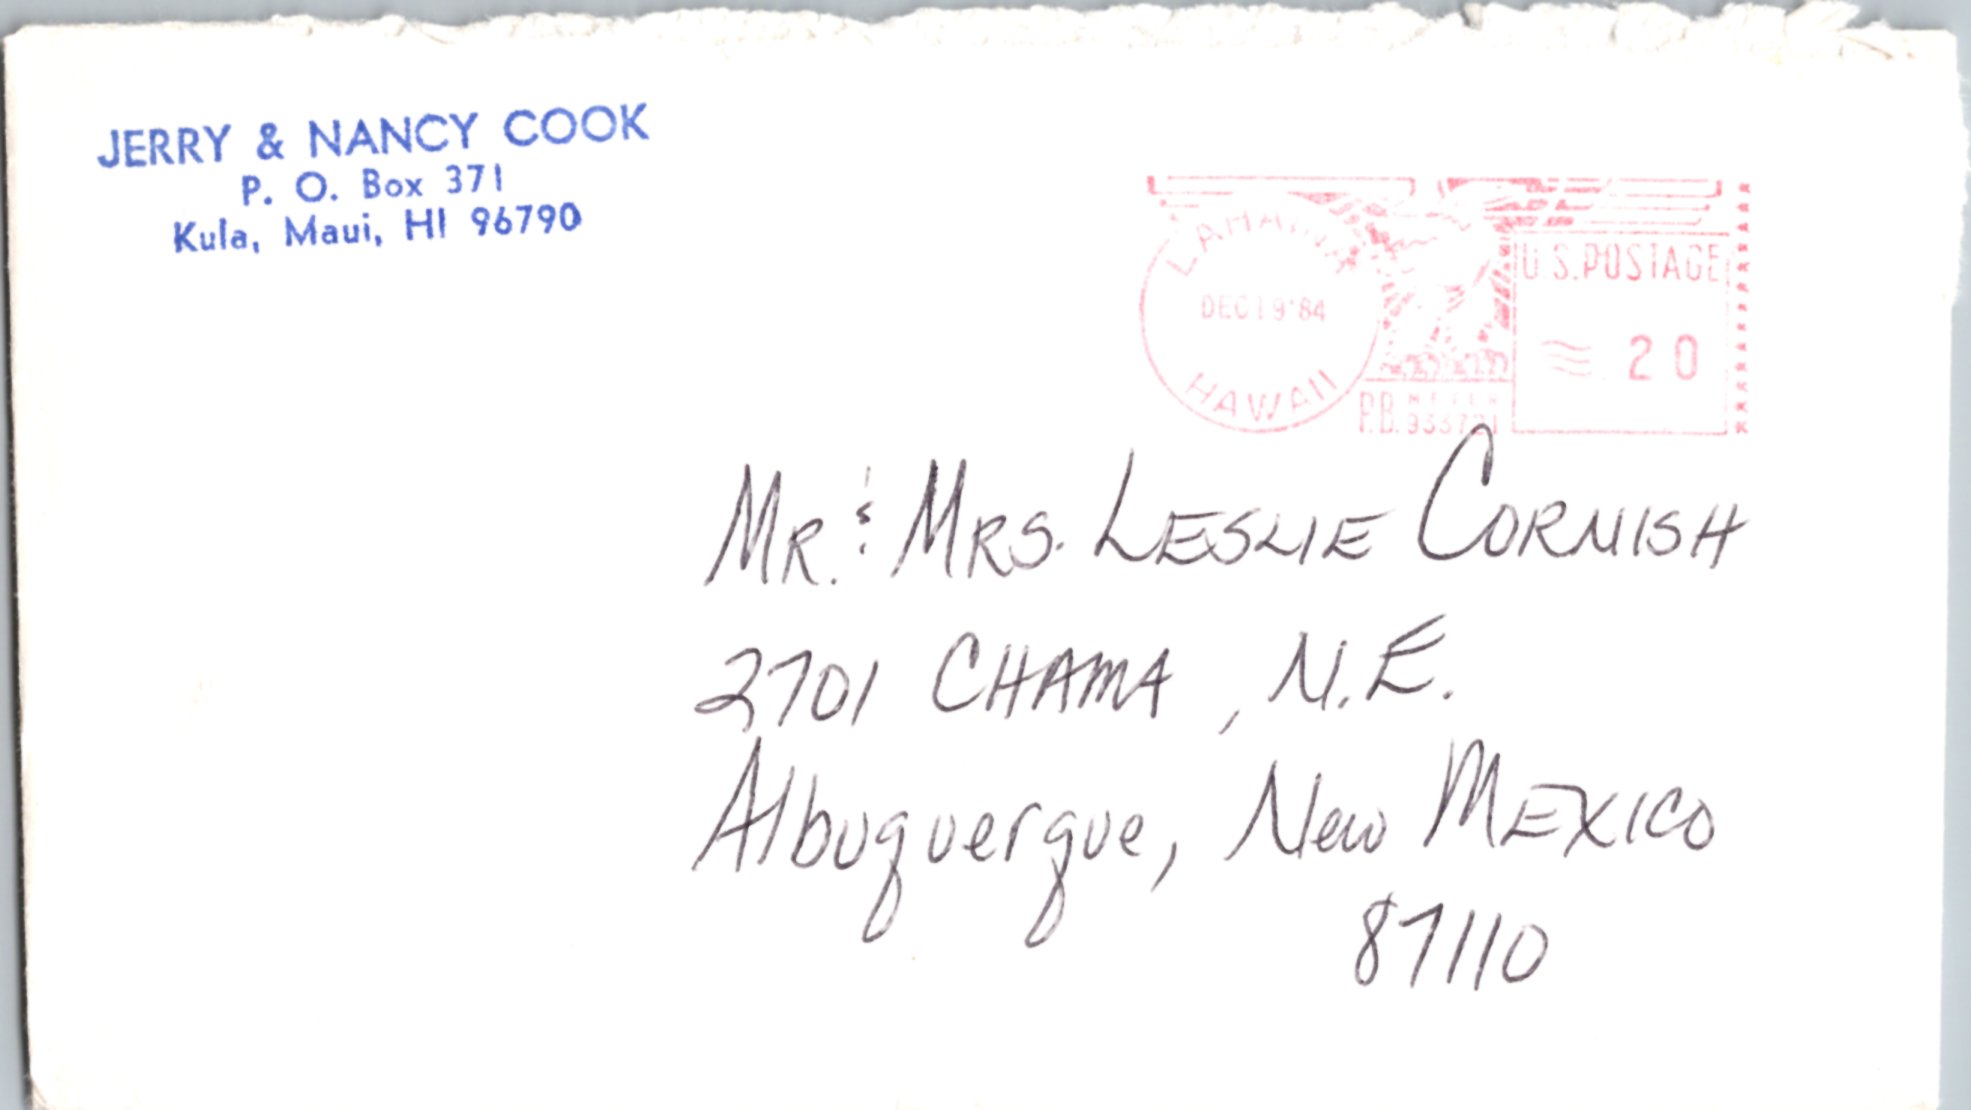 JERRY & NANCY COOK
P. O. Box 371
Kula, Maui, HI 96790
LAHAINA
DEC 19 '84
HAWAII
U.S. POSTAGE
20
P.B. METER
Mr. & Mrs. Leslie Cornish
2701 Chama, N.E.
Albuquerque, New Mexico
87110